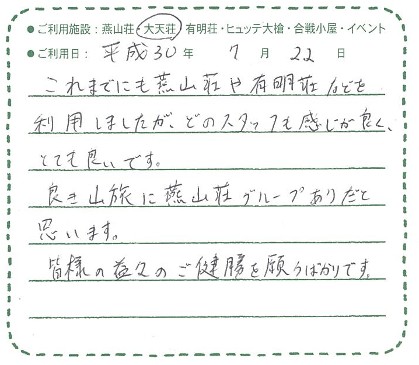 ●ご利用施設：燕山荘・大天荘・有明荘・ヒュッテ大槍・合戦小屋・イベント
●ご利用日：平成30年 7月 22日
これまでにも燕山荘や有明荘などを
利用しましたが、どのスタッフも感じが良く、
とても良いです。
良き山旅に燕山荘グループありだと
思います。
皆様の益々のご健勝を願うばかりです。